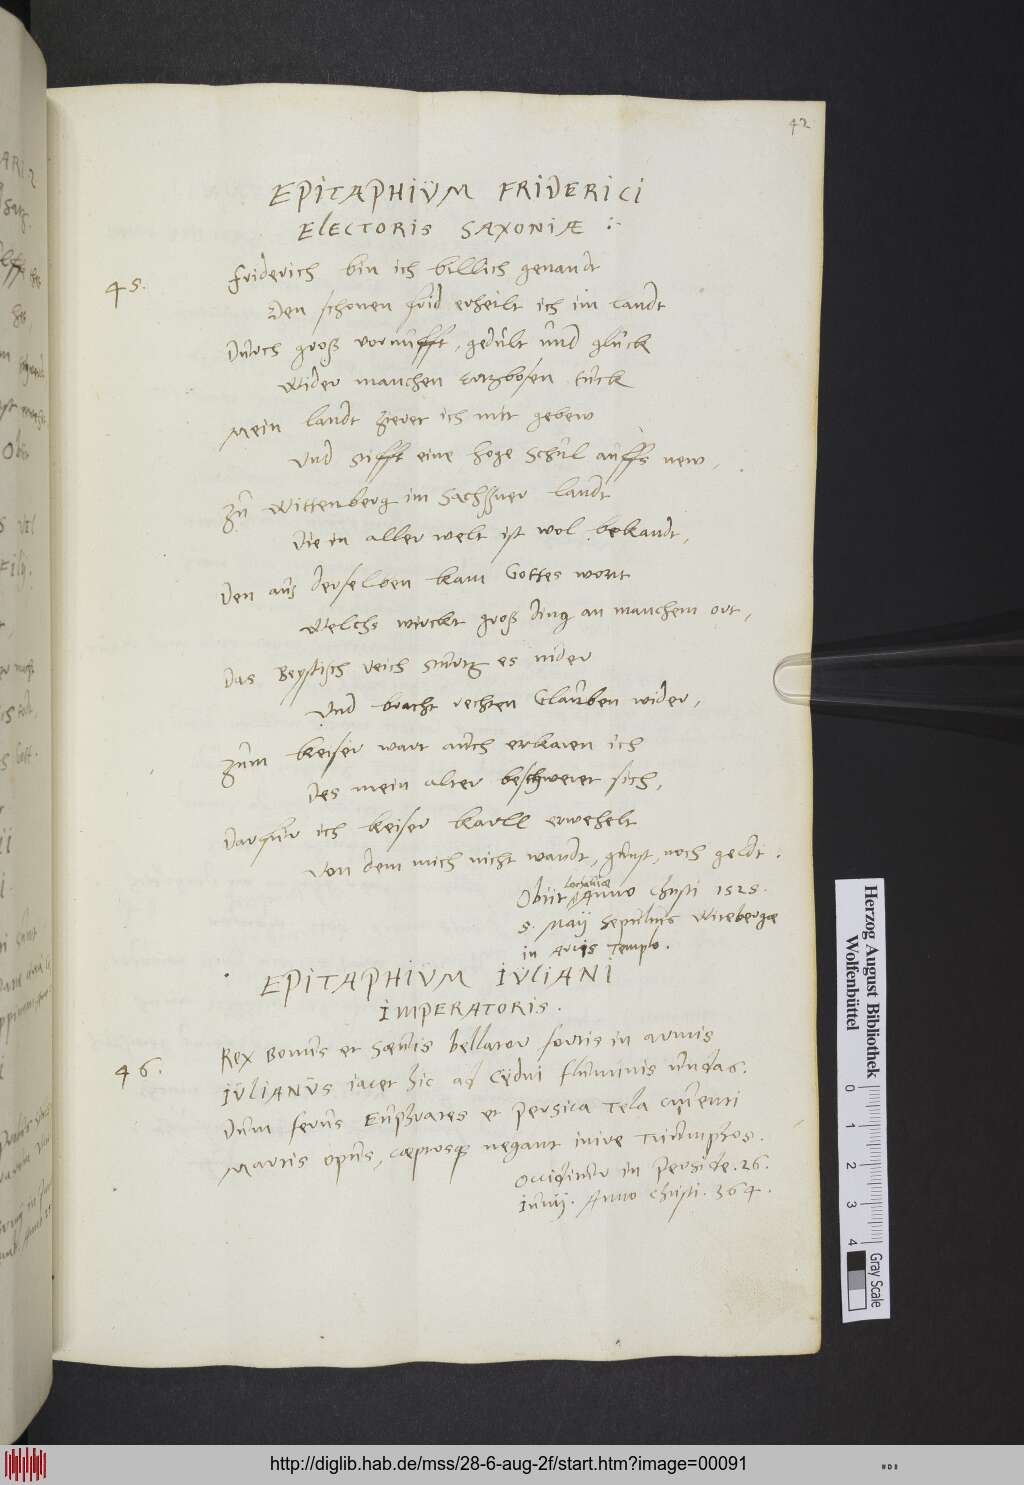 42
EPITAPHIŬM FRIDERICI
ElECTORIS SAXONIÆ
45.
friderich bin ich billich genandt
Den schonen frid erheilt ich im landt
Dŭrch groß vornŭfft, gedŭlt ŭnd glŭck
Wider manchen Ertzbosen tŭck
Mein landt zieret ich mitt gebew
Vnd stifft eine hoge Schŭl aŭffs new,
Zŭ Wittenberg im Sachssner landt
Die in aller welt ist wol bekandt,
Den aŭs derselben kam Gottes wort
Welchs wirckt groß ding an manchem ort,
Das Bepstisch reich stŭrtz es nider
Vnd bracht rechten Glaŭben wider,
Zŭm keiser wart aŭch erkaren ich
Des mein alter beschweret sich,
Darfŭr ich keiser karll erwehelt
Von dem mich nicht wandt, gŭnst, noch geldt.
Lochauiæ
Obijt Anno Christi 1525.
5. Maij sepŭltŭs Witebergæ
in Arcis templo.
EPITAPHIŬM IŬLIANI
IMPERATORIS.
46.
Rex Bonŭs et Sæŭis bellator fortis in armis
IŬLIANŬS iacet hic ad Cÿdni flŭminis ŭndas.
Dŭm ferŭs Eŭphrates et Persica tela cŭrenti
Martis opŭs, cæptosq negant inire Triŭmphos.
Occiditŭr in Perside. 26.
Iŭnij. Anno Christi. 364.
Herzog August Bibliothek
Wolfenbüttel
0 1 2 3 4
Gray Scale
http://diglib.hab.de/mss/28-6-aug-2f/start.htm?image=00091